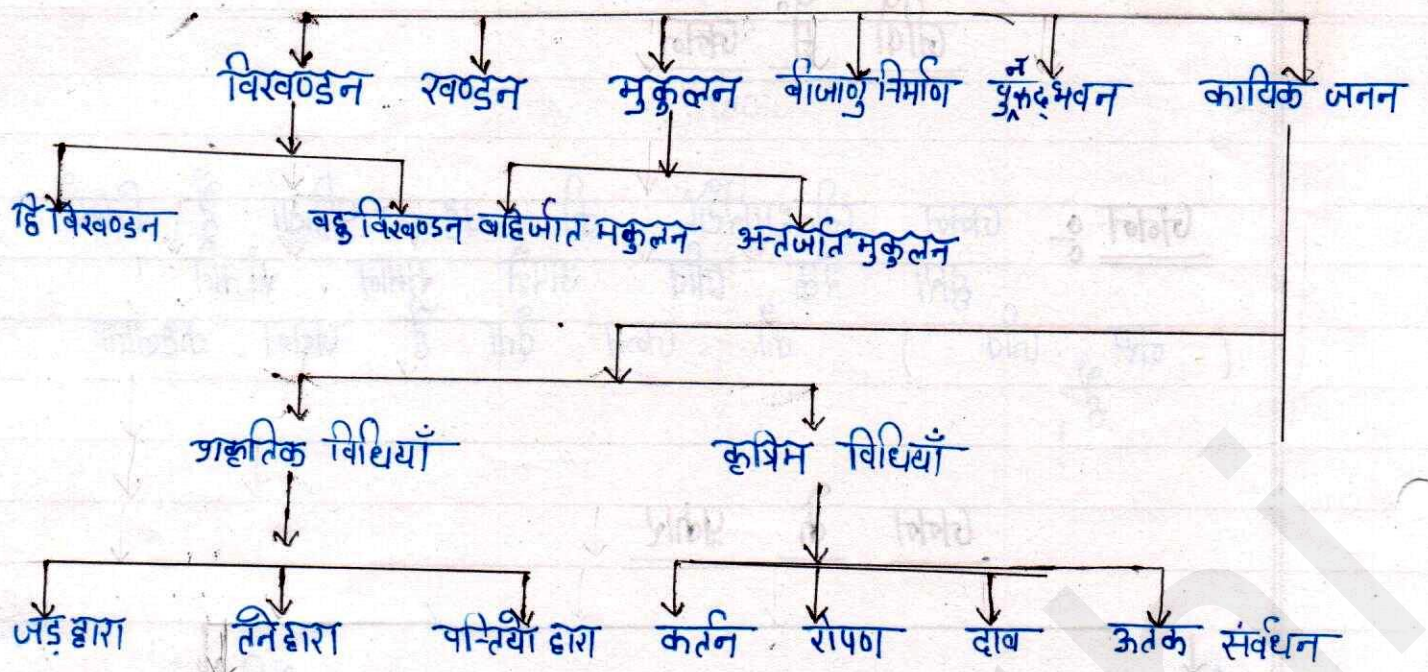 विखण्डन खण्डन मुकुलन बीजाणु निर्माण पुनरुद्भवन कायिक जनन
द्वि विखण्डन बहु विखण्डन बहिर्जात मकुलन अन्तर्जात मुकुलन
प्राकृतिक विधियाँ कृत्रिम विधियाँ
जड़ द्वारा तने द्वारा पत्तियों द्वारा कर्तन रोपण दाब ऊतक संर्वधन